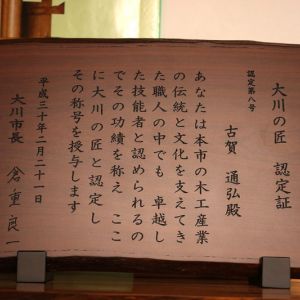 大川の匠 認定証
認定第八号
古賀 通弘殿
あなたは本市の木工産業
の伝統と文化を支えてき
た職人の中でも 卓越し
た技能者と認められるの
でその功績を称え ここ
に大川の匠と認定し
その称号を授与します
平成三十年二月二十一日
大川市長 倉重良一